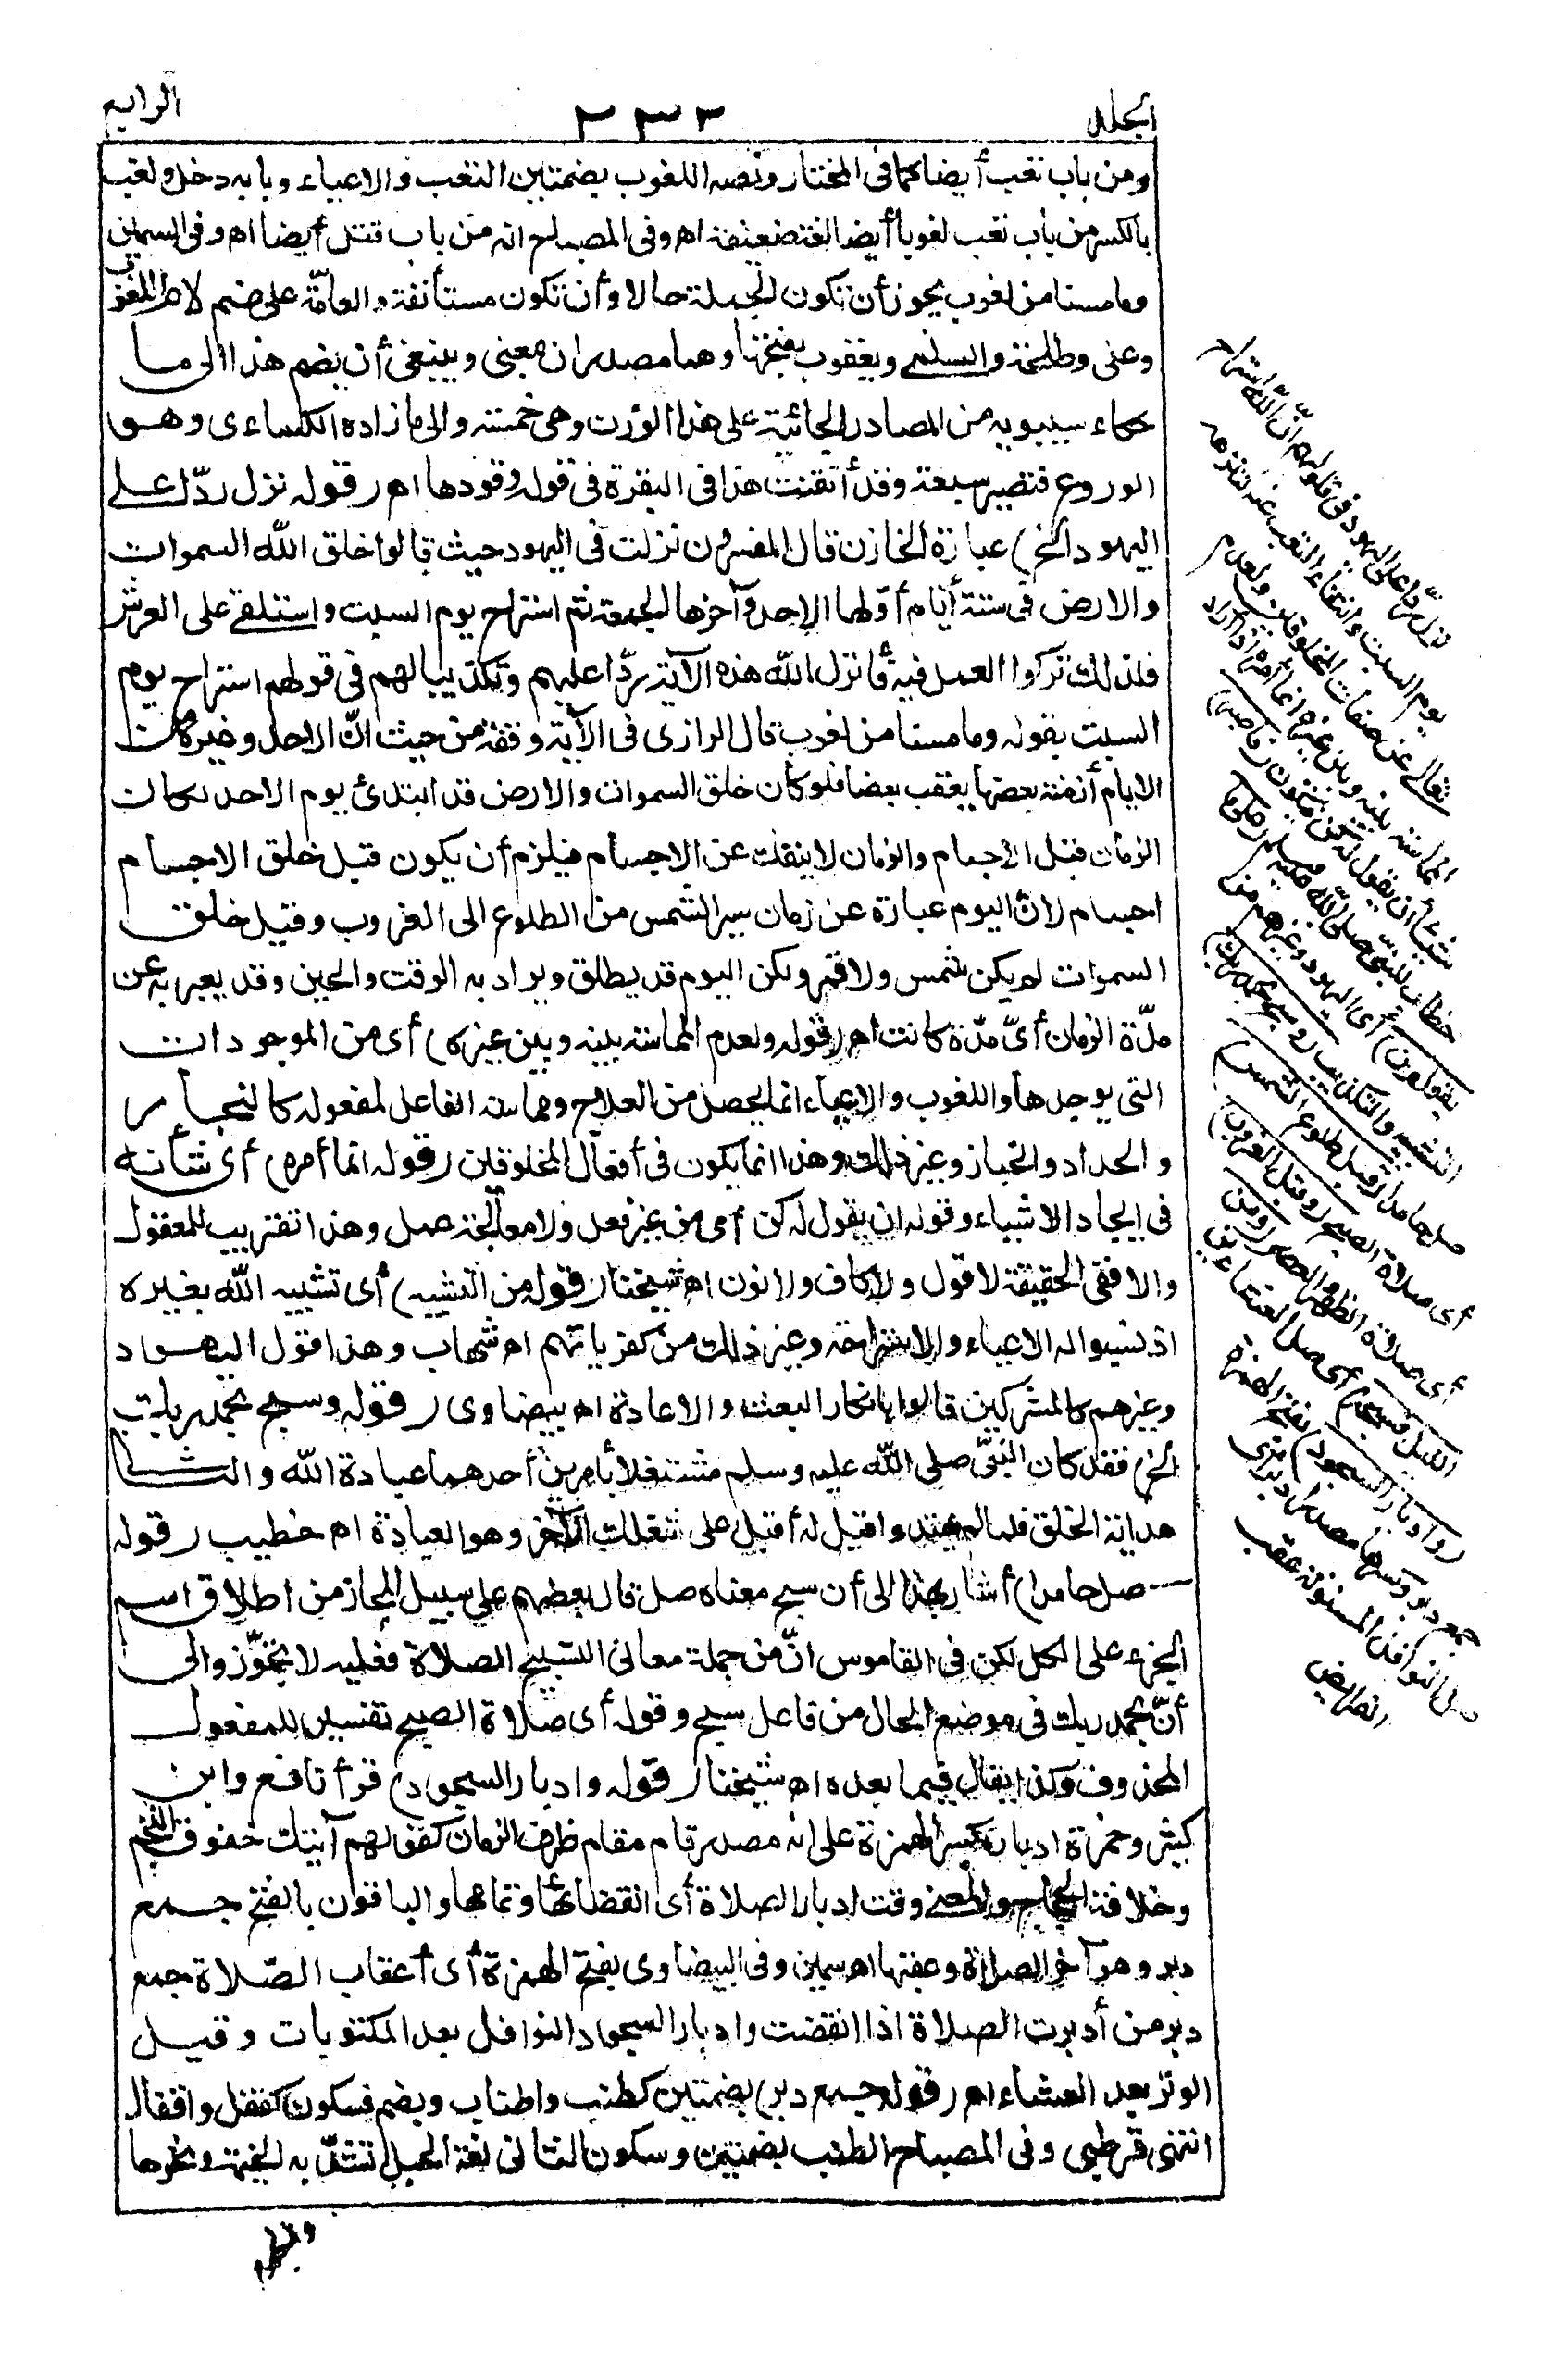 المجلد
٢٣٣
الرابع
ومن باب تعب أيضا كما في المختار ونصه اللغوب بضمتين التعب والاعياء وبابه دخل ولغب
بالكسر من باب تعب لغوبا أيضا لغة ضعيفة اه وفي المصباح انه من باب قتل أيضا اه وفي السمين
وما مسنا من لغوب يجوز أن تكون الجملة حالا وأن تكون مستأنفة والعامّة على ضم لام اللغوب
وعلى وطلحة والسلمي ويعقوب بفتحها وهما مصدران بمعنى وينبغي أن يضم هذا الى ما
حكاه سيبويه من المصادر الجائية على هذا الوزن وهي خمسة والى ما زاده الكساءى وهو
الوزوع فتصير سبعة وقد أتقنت هذا في البقرة في قوله وقودها اه (قوله نزل ردّا على
اليهود الخ) عبارة الخازن قال المفسرون نزلت في اليهود حيث قالوا خلق الله السموات
والارض في ستة أيام أوّلها الاحد وآخرها الجمعة ثم استراح يوم السبت واستلقى على العرش
فلذلك تركوا العمل فيه فأنزل الله هذه الآية ردّا عليهم وتكذيبا لهم في قولهم استراح يوم
السبت بقوله وما مسنا من لغوب قال الرازى في الآية وقفة من حيث انّ الاحد وغيره من
الايام أزمنة بعضها يعقب بعضا فلو كان خلق السموات والارض قد ابتدئ يوم الاحد لكان
الزمان قبل الاجسام والزمان لا ينفك عن الاجسام فيلزم أن يكون قبل خلق الاجسام
اجسام لان اليوم عبارة عن زمان سير الشمس من الطلوع الى الغروب وقبل خلق
السموات لم يكن شمس ولا قمر ولكن اليوم قد يطلق ويراد به الوقت والحين وقد يعبر به عن
مدّة الزمان أىّ مدّة كانت اه (قوله ولعدم المماسة بينه وبين غيره) أى من الموجودات
التى يوجدها واللغوب والاعياء انما يحصل من العلاج ومماسة الفاعل لمفعوله كالنجار
والحداد والخباز وغير ذلك وهذا انما يكون في أفعال المخلوقين (قوله انما أمره) أى شأنه
في ايجاد الاشياء وقوله ان يقول له كن أى من غير فعل ولا معالجة عمل وهذا تقريب للعقول
والا ففى الحقيقة لا قول ولا كاف ولا نون اه شيخنا (قوله من التشبيه) أى تشبيه الله بغيره
اذ نسبوا له الاعياء والاستراحة وغير ذلك من كفرياتهم اه شهاب وهذا قول اليهود
وغيرهم كالمشركين قالوا بانكار البعث والاعادة اه بيضاوى (قوله وسبح بحمد ربك
الخ) فقد كان النبىّ صلى الله عليه وسلم مشتغلا بأمرين أحدهما عبادة الله والثانى
هداية الخلق فلما لم يهتدوا قيل له أقبل على شغلك الآخر وهو العبادة اه خطيب (قوله
صل حامدا) أشار بهذا الى أن سبح معناه صل قال بعضهم على سبيل المجاز من اطلاق اسم
الجزء على الكل لكن في القاموس انّ من جملة معانى التسبيح الصلاة فعليه لا تجوّز والى
أنّ بحمد ربك في موضع الحال من فاعل سبح وقوله أى صلاة الصبح تفسير للمفعول
المحذوف وكذا يقال فيما بعده اه شيخنا (قوله وادبار السجود) قرأ نافع وابن
كثير وحمزة ادبار بكسر الهمزة على انه مصدر قام مقام ظرف الزمان كقولهم آتيتك خفوق النجم
وخلافة الحجاج والمعنى وقت ادبار الصلاة أى انقضائها وتمامها والباقون بالفتح جمع
دبر وهو آخر الصلاة وعقبها اه سمين وفى البيضاوى بفتح الهمزة أى أعقاب الصّلاة جمع
دبر من أدبرت الصلاة اذا انقضت وادبار السجود النوافل بعد المكتوبات وقيل
الوتر بعد العشاء اه (قوله جمع دبر) بضمتين كطنب واطناب وبضم فسكون كقفل واقفال
انتهى قرطبى وفى المصباح الطنب بضمتين وسكون الثانى لغة الحبل تشدّ به الخيمة ونحوها
نزل ردّا على اليهود في قولهم انّ الله استراح
يوم السبت وانتفاء التعب عنه لتنزهه
تعالى عن صفات المخلوقين ولعدم
المماسة بينه وبين غيره انما أمره اذا أراد
شيأ أن يقول له كن فيكون (فاصبر)
خطاب للنبىّ صلى الله عليه وسلم (على ما
يقولون) أى اليهود وغيرهم من
التشبيه والتكذيب (وسبح بحمد ربك)
صل حامدا (قبل طلوع الشمس)
أى صلاة الصبح (وقبل الغروب)
أى صلاة الظهر والعصر (ومن
الليل فسبحه) أى صل العشاءين
(وأدبار السجود) بفتح الهمزة
جمع دبر وكسرها مصدر أدبر أى
صل النوافل المسنونة عقب
الفرائض